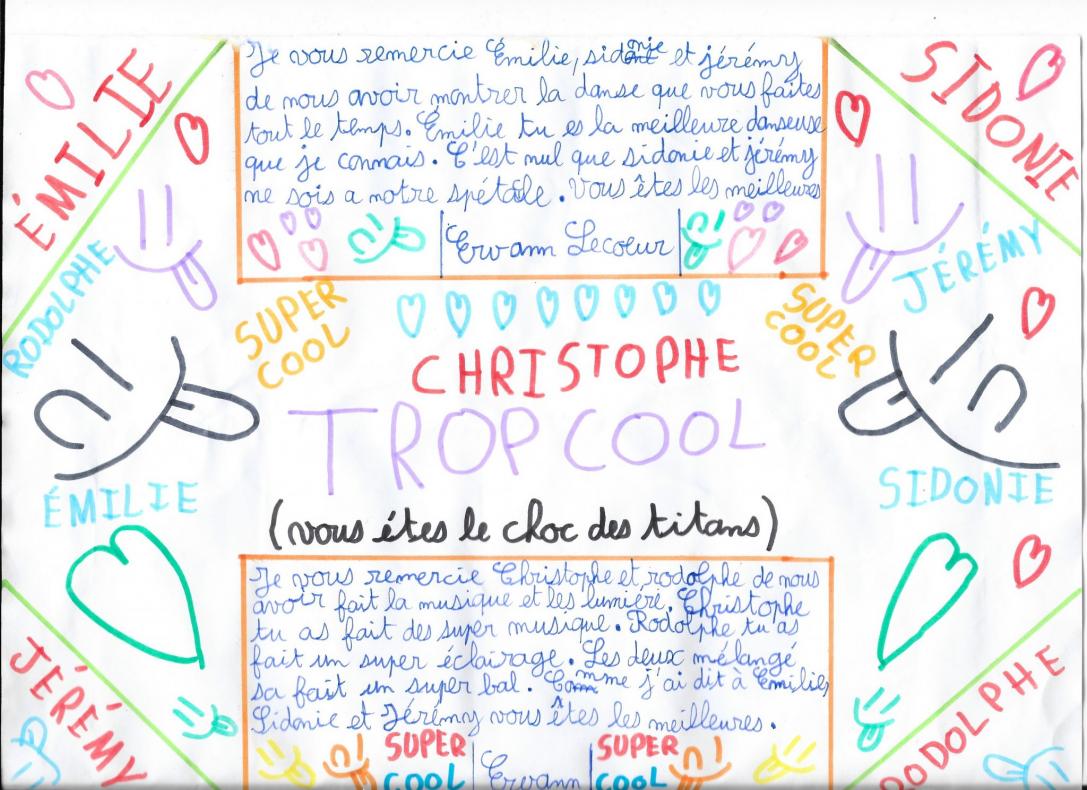 Je vous remercie Émilie, sidonie et jérémy
de nous avoir montrer la danse que vous faites
tout le temps. Émilie tu es la meilleure danseuse
que je connais. C'est nul que sidonie et jérémy
ne sois a notre spétâcle. Vous êtes les meilleures
Ervann Lecoeur
ÉMILIE
SIDONIE
RODOLPHE
JÉRÉMY
SUPER
COOL
SUPER
COOL
CHRISTOPHE
TROP COOL
ÉMILIE
SIDONIE
(vous étes le choc des titans)
Je vous remercie Christophe et rodolphe de nous
avoir fait la musique et les lumière. Christophe
tu as fait des super musique. Rodolphe tu as
fait un super éclairage. Les deux mélangé
sa fait un super bal. Comme j'ai dit à Émilie,
Sidonie et Jérémy vous êtes les meilleures.
JÉRÉMY
RODOLPHE
SUPER
COOL
Ervann
SUPER
COOL